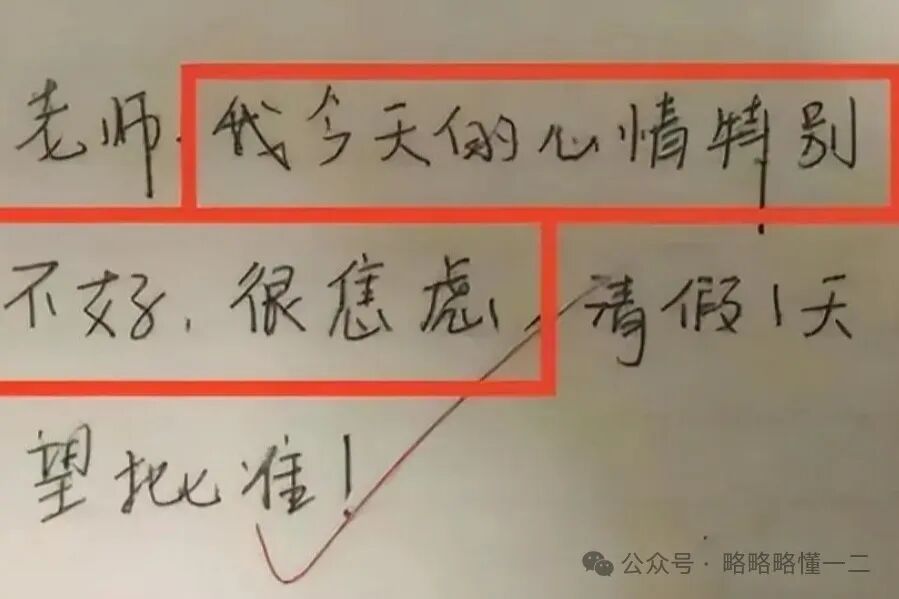 老师,我今天的心情特别
不好,很焦虑,请假1天
望批准!
公众号·略略略懂一二